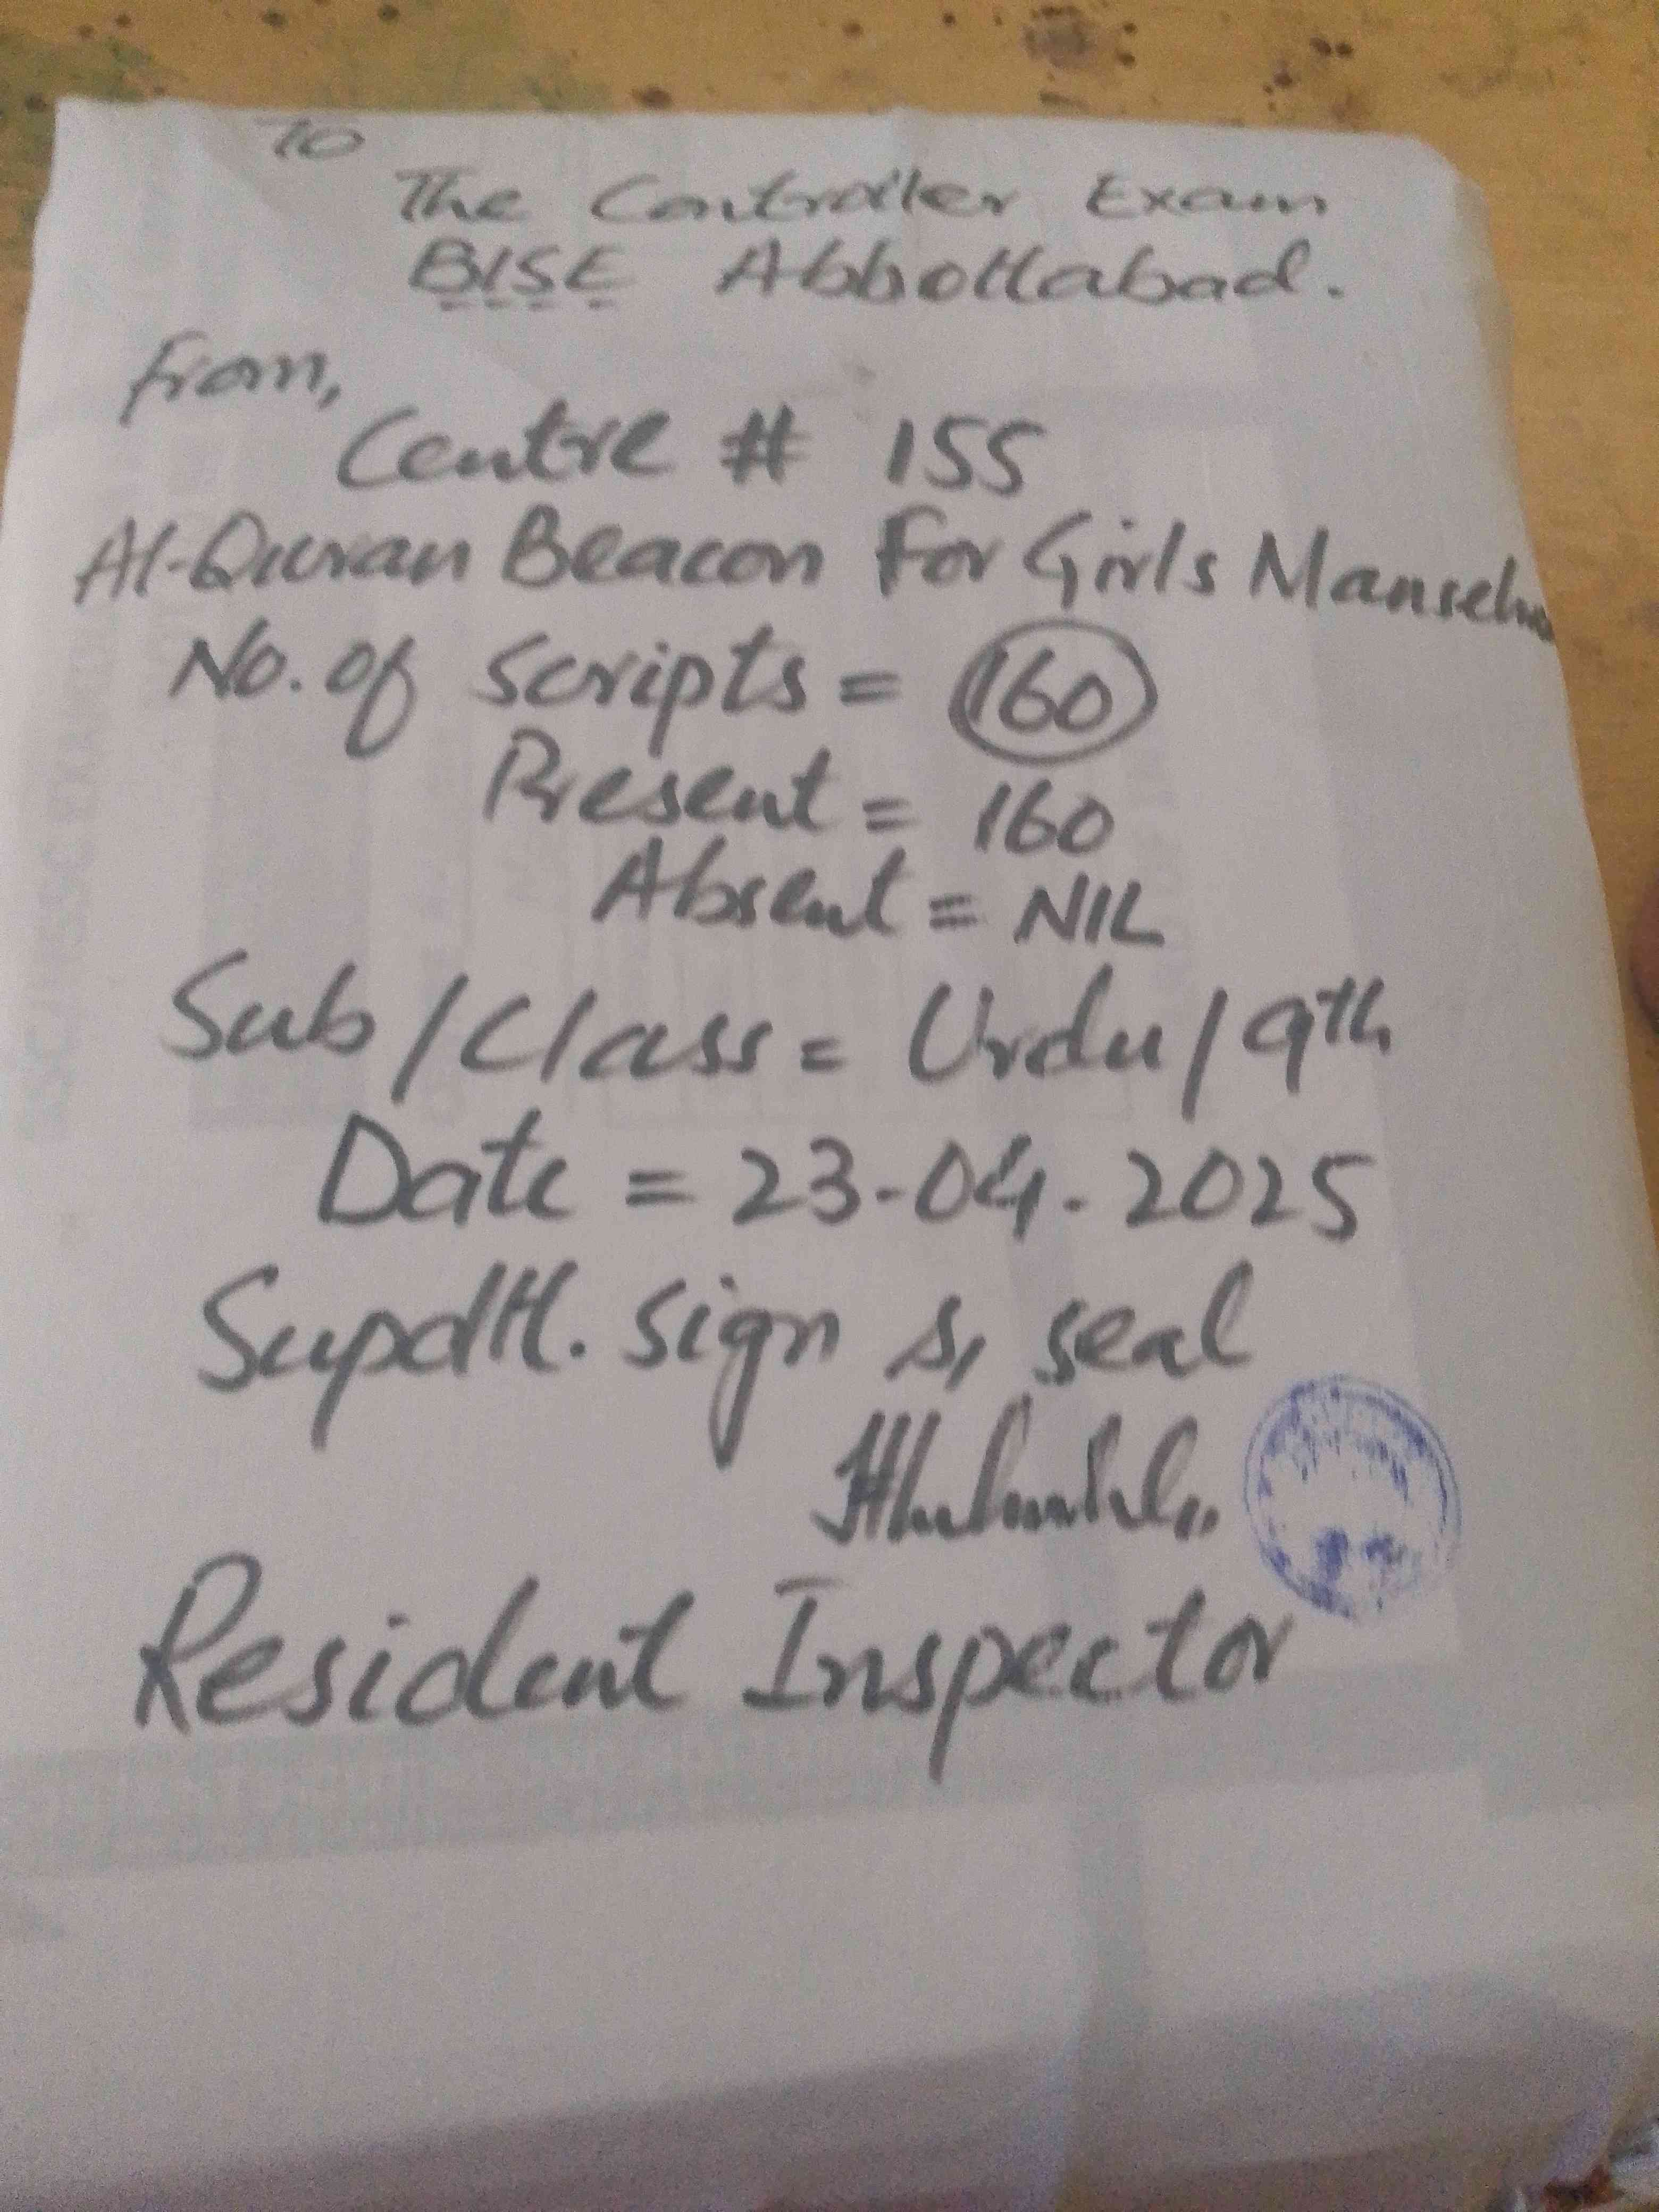 To
The Controller Exam
BISE Abbottabad.
From,
Centre # 155
Al-Quran Beacon For Girls Mansehra
No. of Scripts = 160
Present = 160
Absent = NIL
Sub/Class = Urdu/9th
Date = 23-04-2025
Supdtt. sign & seal
Resident Inspector